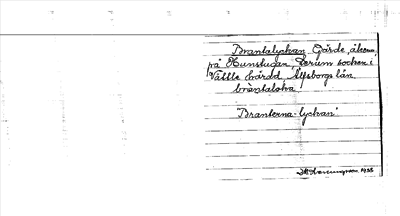 Brantalyckan Gärde, åkern
på Hunstugan, Lerum socken i
Vättle härad Älvsborgs län
bràntaløka
"Branterna-lyckan"
1935